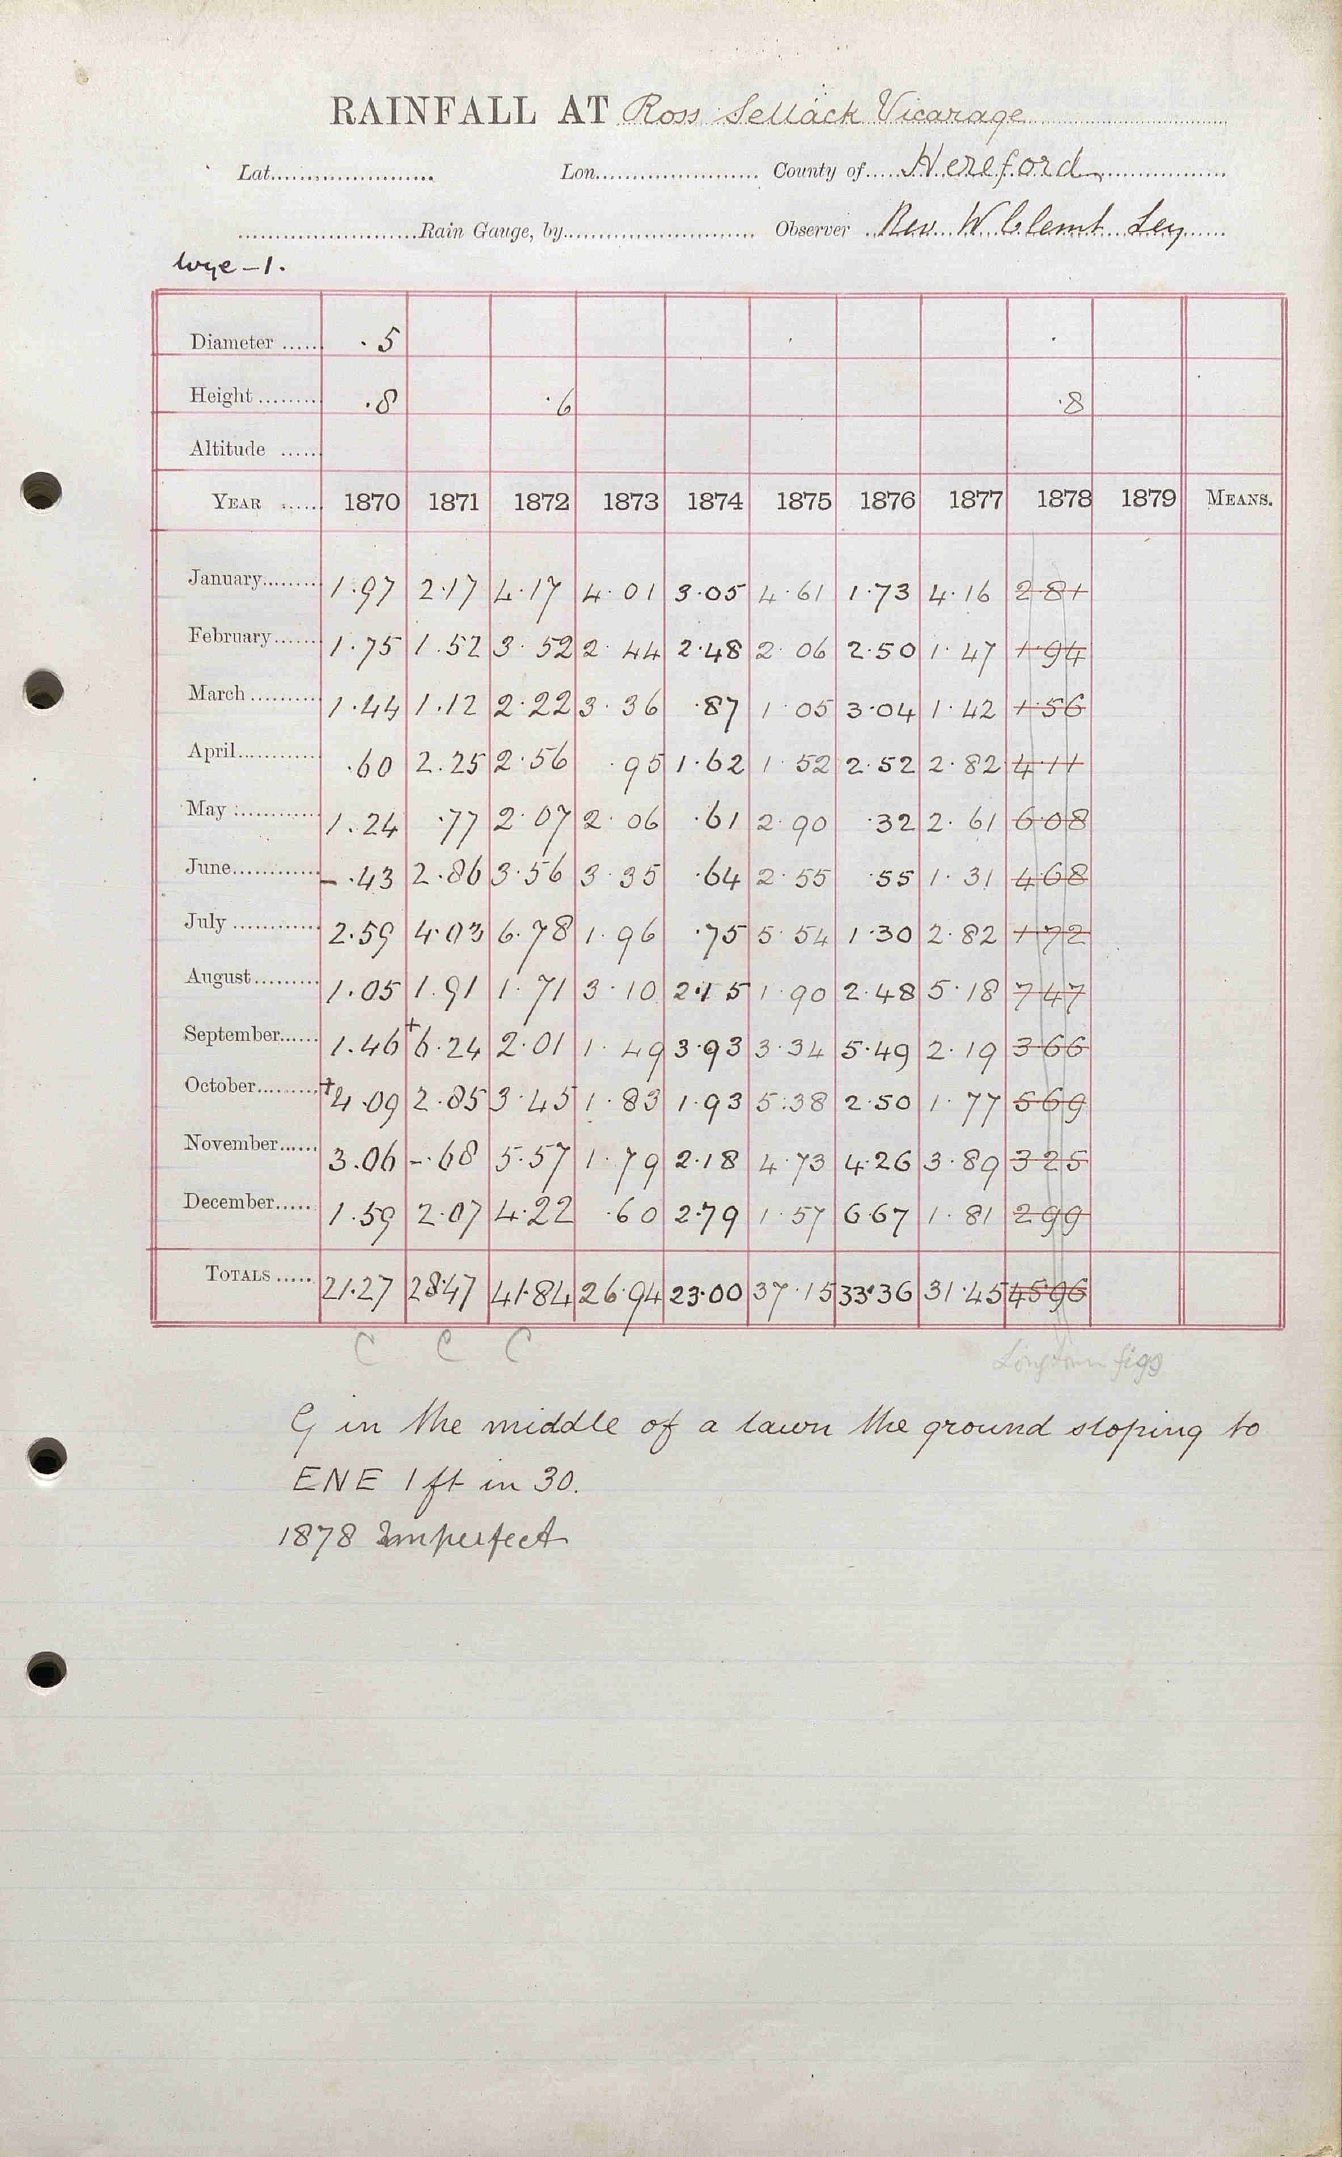 RAINFALL AT Ross Sellack Vicarage
Lat. Lon. County of Hereford
Rain Gauge, by Observer Rev. W Clemt Ley
Wye-1.
Diameter ·5
Height ·8 ·6 ·8
Altitude
YEAR 1870 1871 1872 1873 1874 1875 1876 1877 1878 1879 MEANS.
January 1·97 2·17 4·17 4·01 3·05 4·61 1·73 4·16 2 81
February 1·75 1·52 3·52 2·44 2·48 2·06 2·50 1·47 1·94
March 1·44 1·12 2·22 3·36 ·87 1·05 3·04 1·42 1·56
April ·60 2·25 2·56 ·95 1·62 1·52 2·52 2·82 4·11
May 1·24 ·77 2·07 2·06 ·61 2·90 ·32 2·61 6 08
June – ·43 2·86 3·56 3·35 ·64 2·55 ·55 1·31 4 68
July 2·59 4·03 6·78 1·96 ·75 5·54 1·30 2·82 1 72
August 1·05 1·91 1·71 3·10 2·15 1·90 2·48 5·18 7 47
September 1·46 +6·24 2·01 1·49 3·93 3·34 5·49 2·19 3 66
October +4·09 2·85 3·45 1·83 1·93 5·38 2·50 1·77 5 69
November 3·06 –·68 5·57 1·79 2·18 4·73 4·26 3·89 3 25
December 1·59 2·07 4·22 ·60 2·79 1·57 6·67 1·81 2 99
TOTALS 21·27 28·47 41·84 26·94 23·00 37·15 33·36 31·45 45 96
C C C Longtown figs
G in the middle of a lawn the ground sloping to
ENE 1 ft in 30.
1878 Imperfect